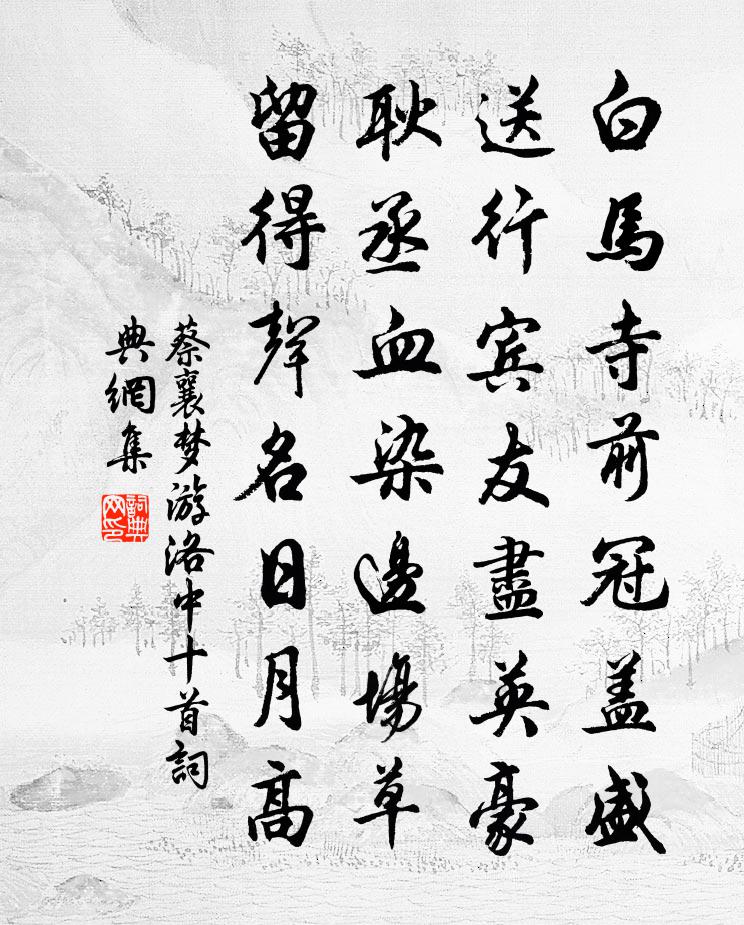 白馬寺前冠盖盛
送行宾友盡英豪
耿丞血染邊場草
留得聲名日月高
蔡襄梦游洛中十首詞
典網集
詞典
网印